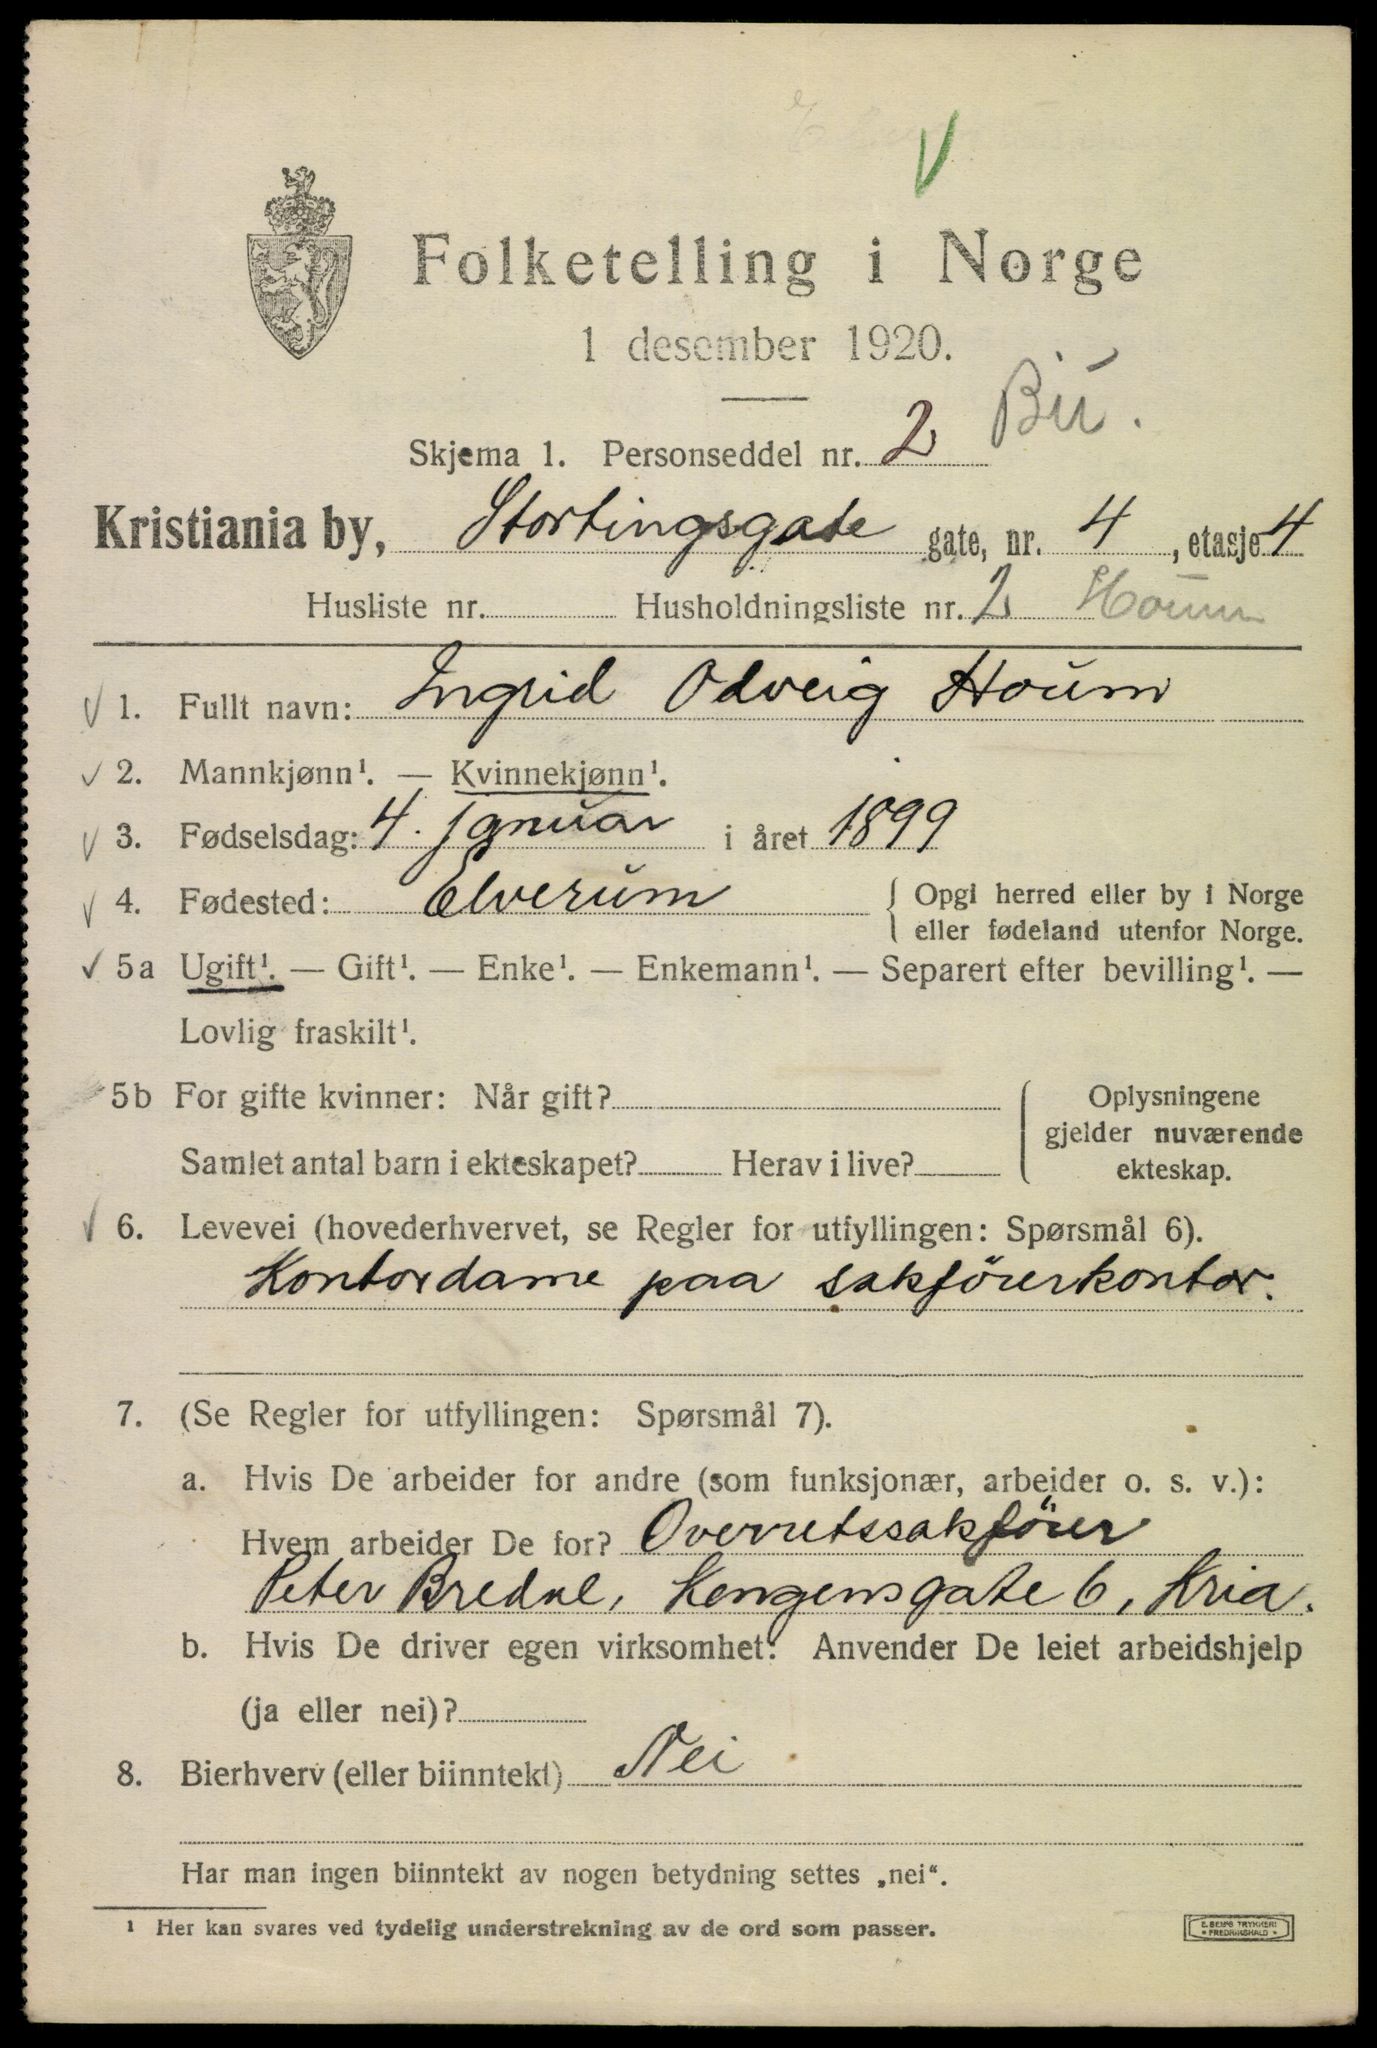 Folketelling i Norge
1 desember 1920.
Skjema 1. Personseddel nr. 2 Bú.
Kristiania by, Stortingsgate gate, nr. 4, etasje 4
Husliste nr. Husholdningsliste nr. 2 Houm
1. Fullt navn: Ingrid Odveig Houm
2. Mannkjønn¹. — Kvinnekjønn¹.
3. Fødselsdag: 4. januar i året 1899
4. Fødested: Elverum { Opgi herred eller by i Norge
eller fødeland utenfor Norge.
5a Ugift¹. — Gift¹. — Enke¹. — Enkemann¹. — Separert efter bevilling¹. —
Lovlig fraskilt¹.
5b For gifte kvinner: Når gift? Oplysningene
gjelder nuværende
Samlet antal barn i ekteskapet? Herav i live? ekteskap.
6. Levevei (hovederhvervet, se Regler for utfyllingen: Spørsmål 6).
Kontordame paa sakförerkontor.
7. (Se Regler for utfyllingen: Spørsmål 7).
a. Hvis De arbeider for andre (som funksjonær, arbeider o. s. v.):
Hvem arbeider De for? Overretssakförer
Peter Bredal, Kongensgate 6, Kria.
b. Hvis De driver egen virksomhet: Anvender De leiet arbeidshjelp
(ja eller nei)?
8. Bierhverv (eller biinntekt) Nei
Har man ingen biinntekt av nogen betydning settes „nei“.
¹ Her kan svares ved tydelig understrekning av de ord som passer.
E. SEMS TRYKKERI
* FREDRIKSHALD *